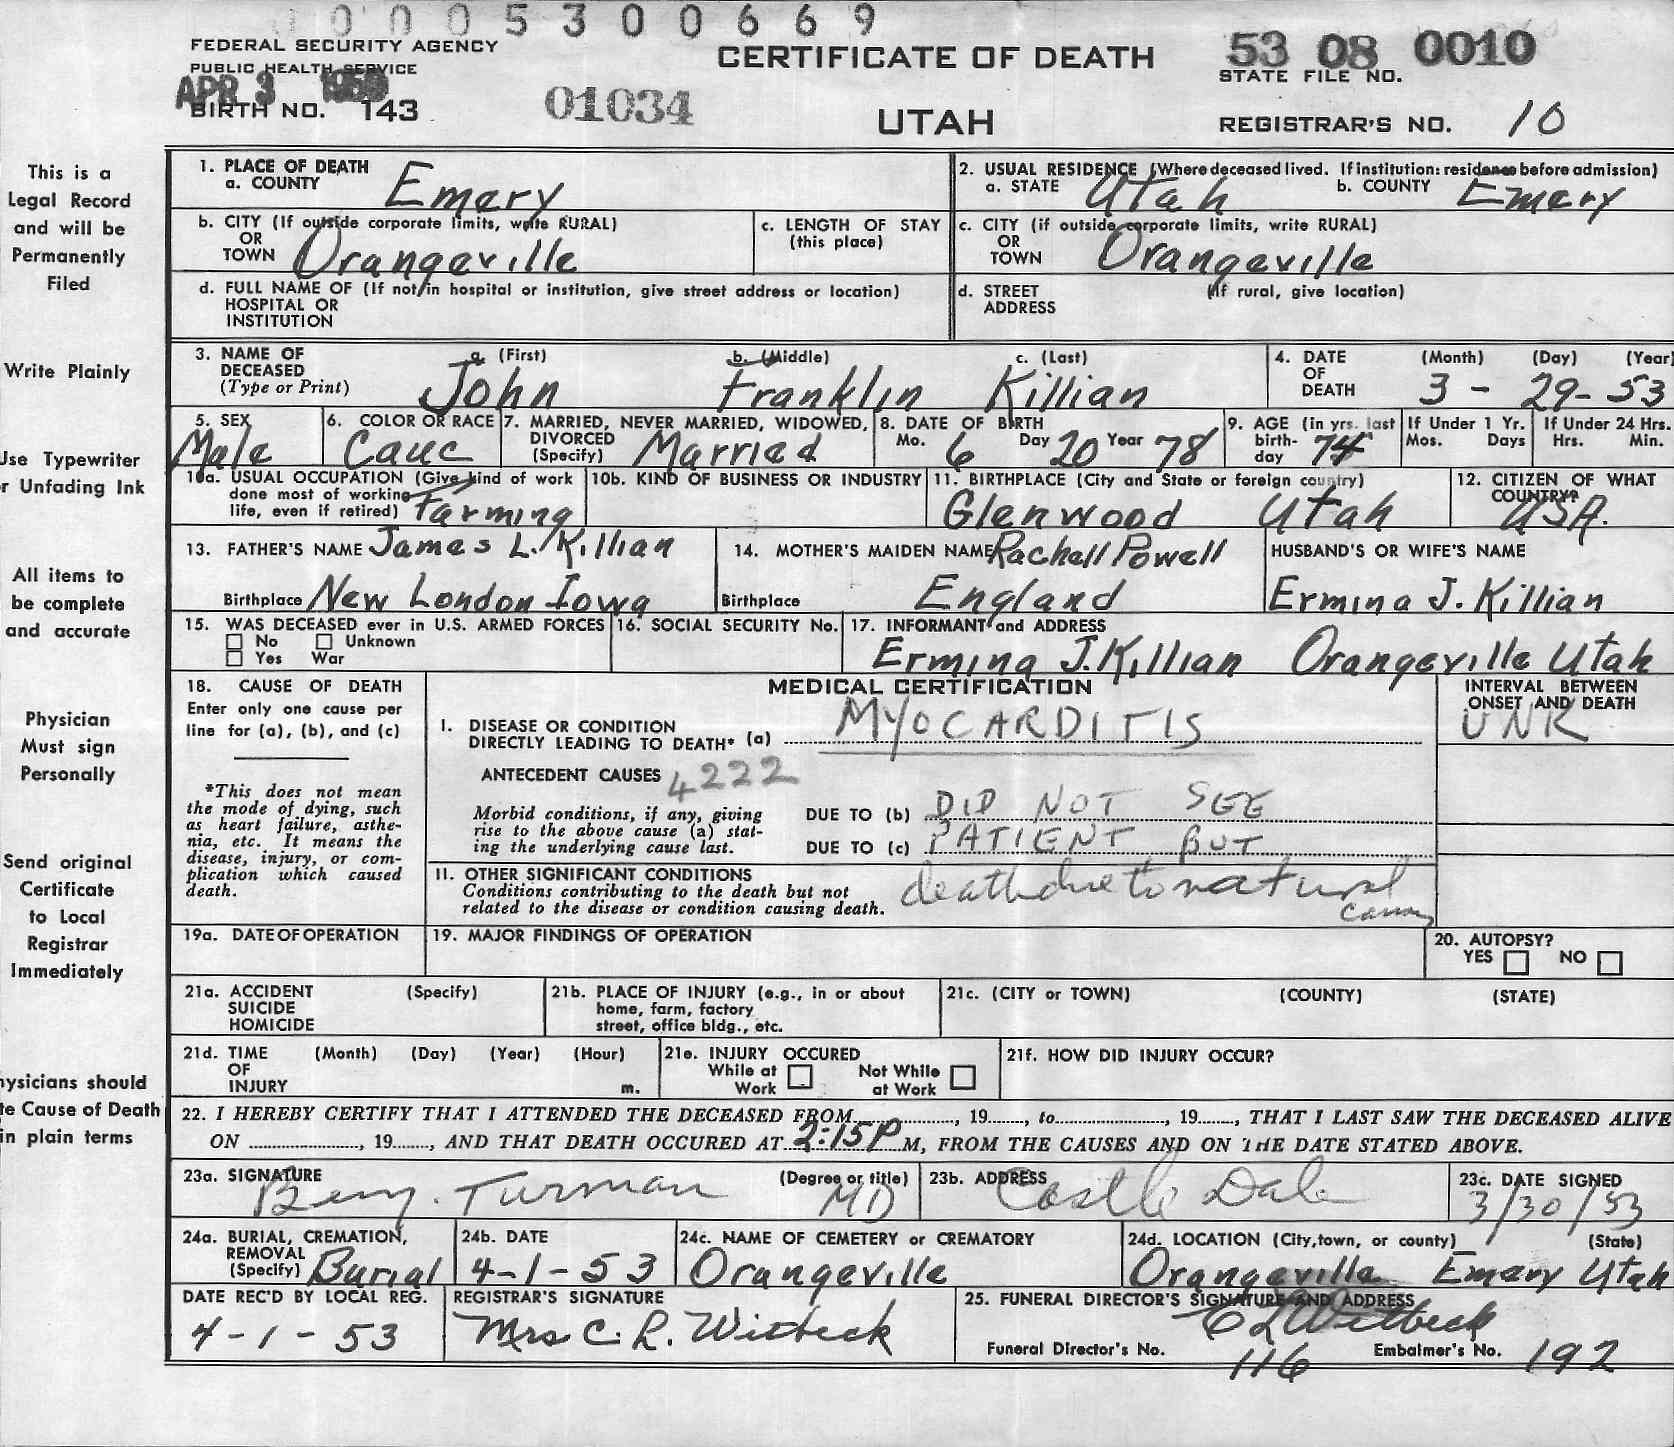 0005300669
FEDERAL SECURITY AGENCY
PUBLIC HEALTH SERVICE
APR 3
BIRTH NO. 143
01034
CERTIFICATE OF DEATH
UTAH
53 08 0010
STATE FILE NO.
REGISTRAR'S NO. 10
This is a
Legal Record
and will be
Permanently
Filed
Write Plainly
Use Typewriter
r Unfading Ink
All items to
be complete
and accurate
Physician
Must sign
Personally
Send original
Certificate
to Local
Registrar
Immediately
hysicians should
te Cause of Death
in plain terms
1. PLACE OF DEATH
a. COUNTY Emery
2. USUAL RESIDENCE (Where deceased lived. If institution: residence before admission)
a. STATE Utah b. COUNTY Emery
b. CITY (If outside corporate limits, write RURAL)
OR
TOWN Orangeville
c. LENGTH OF STAY
(this place)
c. CITY (if outside corporate limits, write RURAL)
OR
TOWN Orangeville
d. FULL NAME OF (If not in hospital or institution, give street address or location)
HOSPITAL OR
INSTITUTION
d. STREET (If rural, give location)
ADDRESS
3. NAME OF a. (First) b. (Middle) c. (Last)
DECEASED
(Type or Print) John Franklin Killian
4. DATE (Month) (Day) (Year)
OF
DEATH 3 - 29 - 53
5. SEX
Male
6. COLOR OR RACE
Cauc
7. MARRIED, NEVER MARRIED, WIDOWED,
DIVORCED
(Specify) Married
8. DATE OF BIRTH
Mo. 6 Day 20 Year 78
9. AGE (in yrs. last
birth-
day 74
If Under 1 Yr.
Mos. Days
If Under 24 Hrs.
Hrs. Min.
10a. USUAL OCCUPATION (Give kind of work
done most of working
life, even if retired) Farming
10b. KIND OF BUSINESS OR INDUSTRY
11. BIRTHPLACE (City and State or foreign country)
Glenwood Utah
12. CITIZEN OF WHAT
COUNTRY?
USA.
13. FATHER'S NAME James L. Killian
Birthplace New London Iowa
14. MOTHER'S MAIDEN NAME Rachell Powell
Birthplace England
HUSBAND'S OR WIFE'S NAME
Ermina J. Killian
15. WAS DECEASED ever in U.S. ARMED FORCES
No Unknown
Yes War
16. SOCIAL SECURITY No.
17. INFORMANT and ADDRESS
Ermina J. Killian Orangeville Utah
18. CAUSE OF DEATH
Enter only one cause per
line for (a), (b), and (c)
*This does not mean
the mode of dying, such
as heart failure, asthe-
nia, etc. It means the
disease, injury, or com-
plication which caused
death.
MEDICAL CERTIFICATION
I. DISEASE OR CONDITION
DIRECTLY LEADING TO DEATH* (a) MYOCARDITIS
INTERVAL BETWEEN
ONSET AND DEATH
UNK
ANTECEDENT CAUSES 4222
Morbid conditions, if any, giving
rise to the above cause (a) stat-
ing the underlying cause last.
DUE TO (b) DID NOT SEE
DUE TO (c) PATIENT BUT
11. OTHER SIGNIFICANT CONDITIONS
Conditions contributing to the death but not
related to the disease or condition causing death.
death due to natural
19a. DATE OF OPERATION
19. MAJOR FINDINGS OF OPERATION
20. AUTOPSY?
YES NO
21a. ACCIDENT (Specify)
SUICIDE
HOMICIDE
21b. PLACE OF INJURY (e.g., in or about
home, farm, factory
street, office bldg., etc.
21c. (CITY or TOWN) (COUNTY) (STATE)
21d. TIME (Month) (Day) (Year) (Hour)
OF
INJURY m.
21e. INJURY OCCURED
While at Not While
Work at Work
21f. HOW DID INJURY OCCUR?
22. I HEREBY CERTIFY THAT I ATTENDED THE DECEASED FROM, 19, to, 19, THAT I LAST SAW THE DECEASED ALIVE
ON, 19, AND THAT DEATH OCCURED AT 2:15 P M, FROM THE CAUSES AND ON THE DATE STATED ABOVE.
23a. SIGNATURE (Degree or title)
Benj. Turman MD
23b. ADDRESS
Castle Dale
23c. DATE SIGNED
3/30/53
24a. BURIAL, CREMATION,
REMOVAL
(Specify) Burial
24b. DATE
4-1-53
24c. NAME OF CEMETERY or CREMATORY
Orangeville
24d. LOCATION (City, town, or county) (State)
Orangeville Emery Utah
DATE REC'D BY LOCAL REG.
4-1-53
REGISTRAR'S SIGNATURE
Mrs C. L. Witbeck
25. FUNERAL DIRECTOR'S SIGNATURE AND ADDRESS
C L Witbeck
Funeral Director's No. 116 Embalmer's No. 192